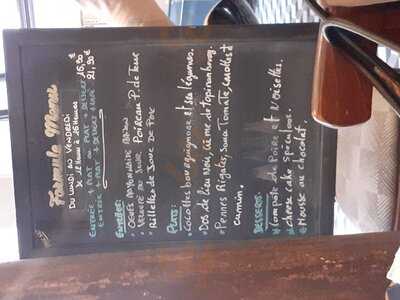 Formule Menu
DU LUNDI AU VENDREDI
DE 12 HEURE À 16 HEURES
ENTRÉE + PLAT OU PLAT + DESSERT 16,90
ENTRÉE + PLAT + DESSERT 21,90€
ENTRÉES:
• OEUFS MAYONNAISE
VELOUTÉ DU JOUR POIREAU P. de Terre
• Rillettes de JOUE DE PORC
PLATS:
• Cocottes bourguignonne et ses légumes.
• Dos de lieu Noir, crème de Topinambourg.
• Pennes Rigates, Sauce Tomate, Carottes et
cumin.
DESSERTS:
Compote de Poire et Noisettes.
cheese cake spéculoos.
Mousse au chocolat.